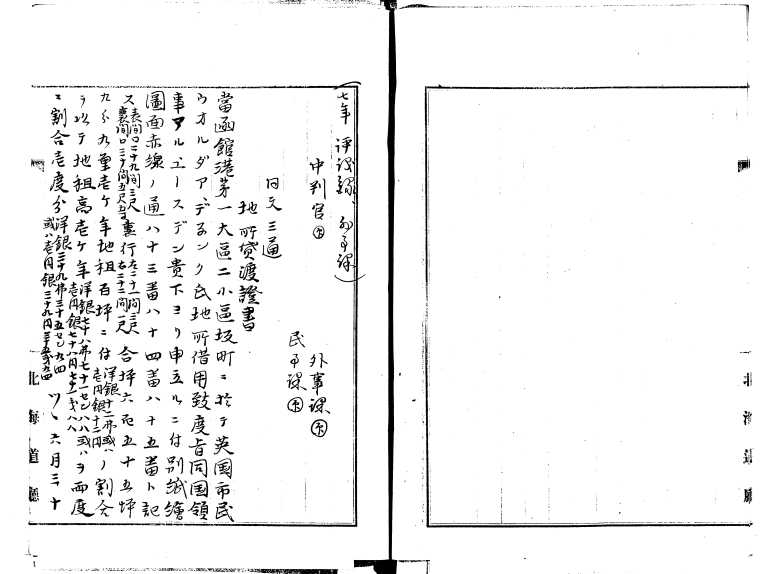 七年 評議録、外事課
中判官 印
外事課 印
民事課 印
同文三通
地所貸渡證書
當函館港第一大區二小區坂町ニ於テ英國市民
ウオルダアデネンク氏地所借用致度旨同国領
事アルユースデン貴下ヨリ申立ルニ付別紙繪
圖面赤線ノ通八十三番八十四番八十五番ト記
ス表間口二十九間三尺
裏間口三十間五尺五寸裏行左二十一間三尺
右二十二間一尺合坪六百五十五坪
九分九厘壱ケ年地租百坪ニ付洋銀十二弗或ハ
壱円銀十二円ノ割合
ヲ以テ地租高壱ケ年洋銀七十八弗七十一セン八八或ハ
壱円銀七十八円七十一銭八八ヲ両度
ニ割合壱度分洋銀三十九弗三十五セン九四
或ハ壱円銀三十九円三十五銭九四ツヽ六月三十
北海道廳
北海道廳